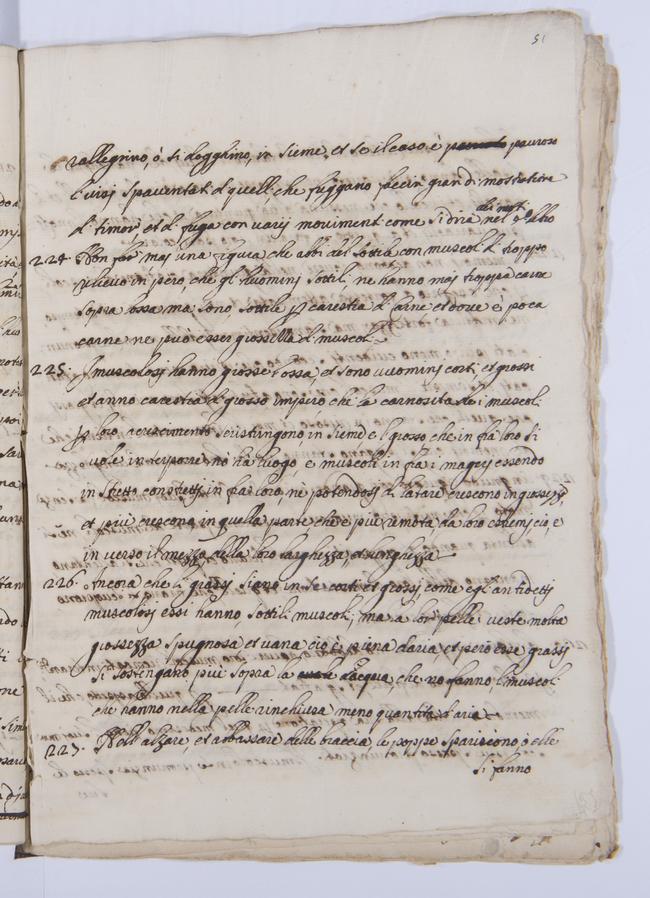 51
rallegrino, ò si dogghino, in sieme, et se il caso è pauroso
i visi spaventati di quelli che fuggano faccin grandi mostratione
di timor et di fuga con varij movimenti come si dirà nel
224 Non far maj una figura che abbi del sottile con muscoli di troppo
rilievo in però, che gl' huominj sottili, ne hanno maj troppa carne
sopra l'ossa ma sono sottile p carestia di carne et dove è poca
carne ne può esser grossezza di muscoli.
225. I muscolosj hanno grosse l'ossa, et sono uominj corti, et grossi
et anno carestia di grosso imperò che la carnosita de i muscoli
p loro acrescimento si ristringono, in sieme e l grosso che in fra loro si
vole interporre nò ha luogo, e i muscoli in fra i magrij essendo
in stretto constretti in fra loro, nè potendosj dilatare crescono in grossezza,
et più crescono in quella parte che è più remota, da loro e
in verso il mezzo, della loro larghezza, et lunghezza
226. Ancora che li grassj siano in se corti et grossj come egl' antidettj
muscolosj essi hanno sottili muscoli, ma a lor pelle veste molta
grossezza spugnosa et vana cio è piena daria, et però esse grassj
si sostengano più sopra la d acqua, che no fanno li muscoli
che hanno nella pelle rinchiusa meno quantità d'aria
227. Nell' alzare, et abbassare delle braccia, le poppe spariscono, ò elle
si fanno